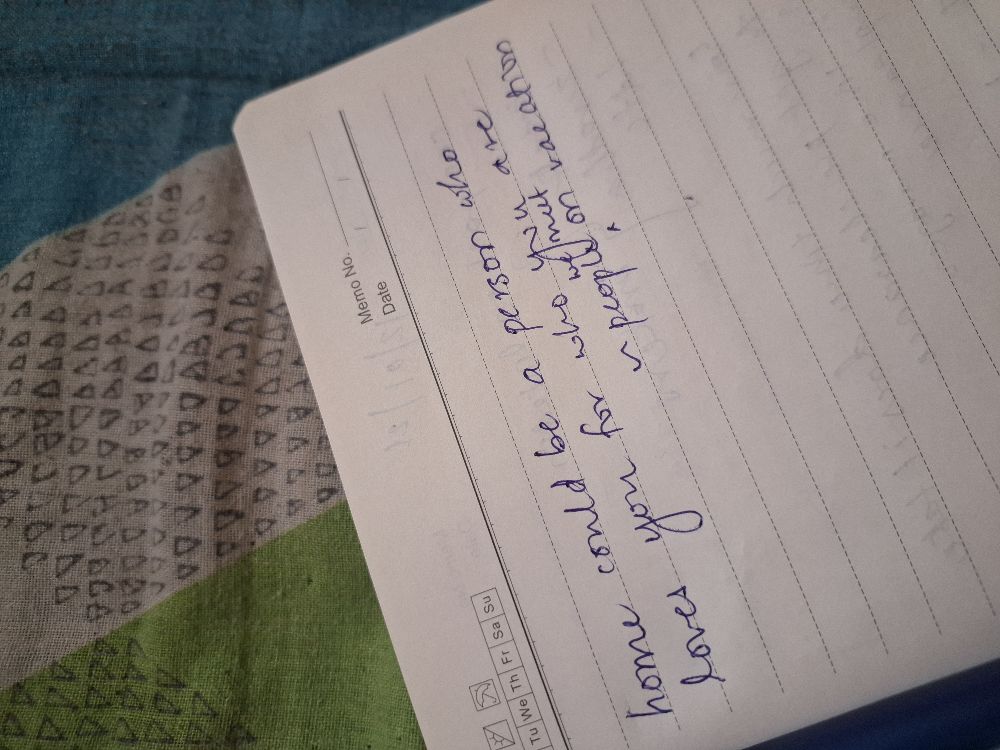 Memo No.
Date / /
Tu We Th Fr Sa Su
home could be a person who
Loves your for who you are
n people met on vacation